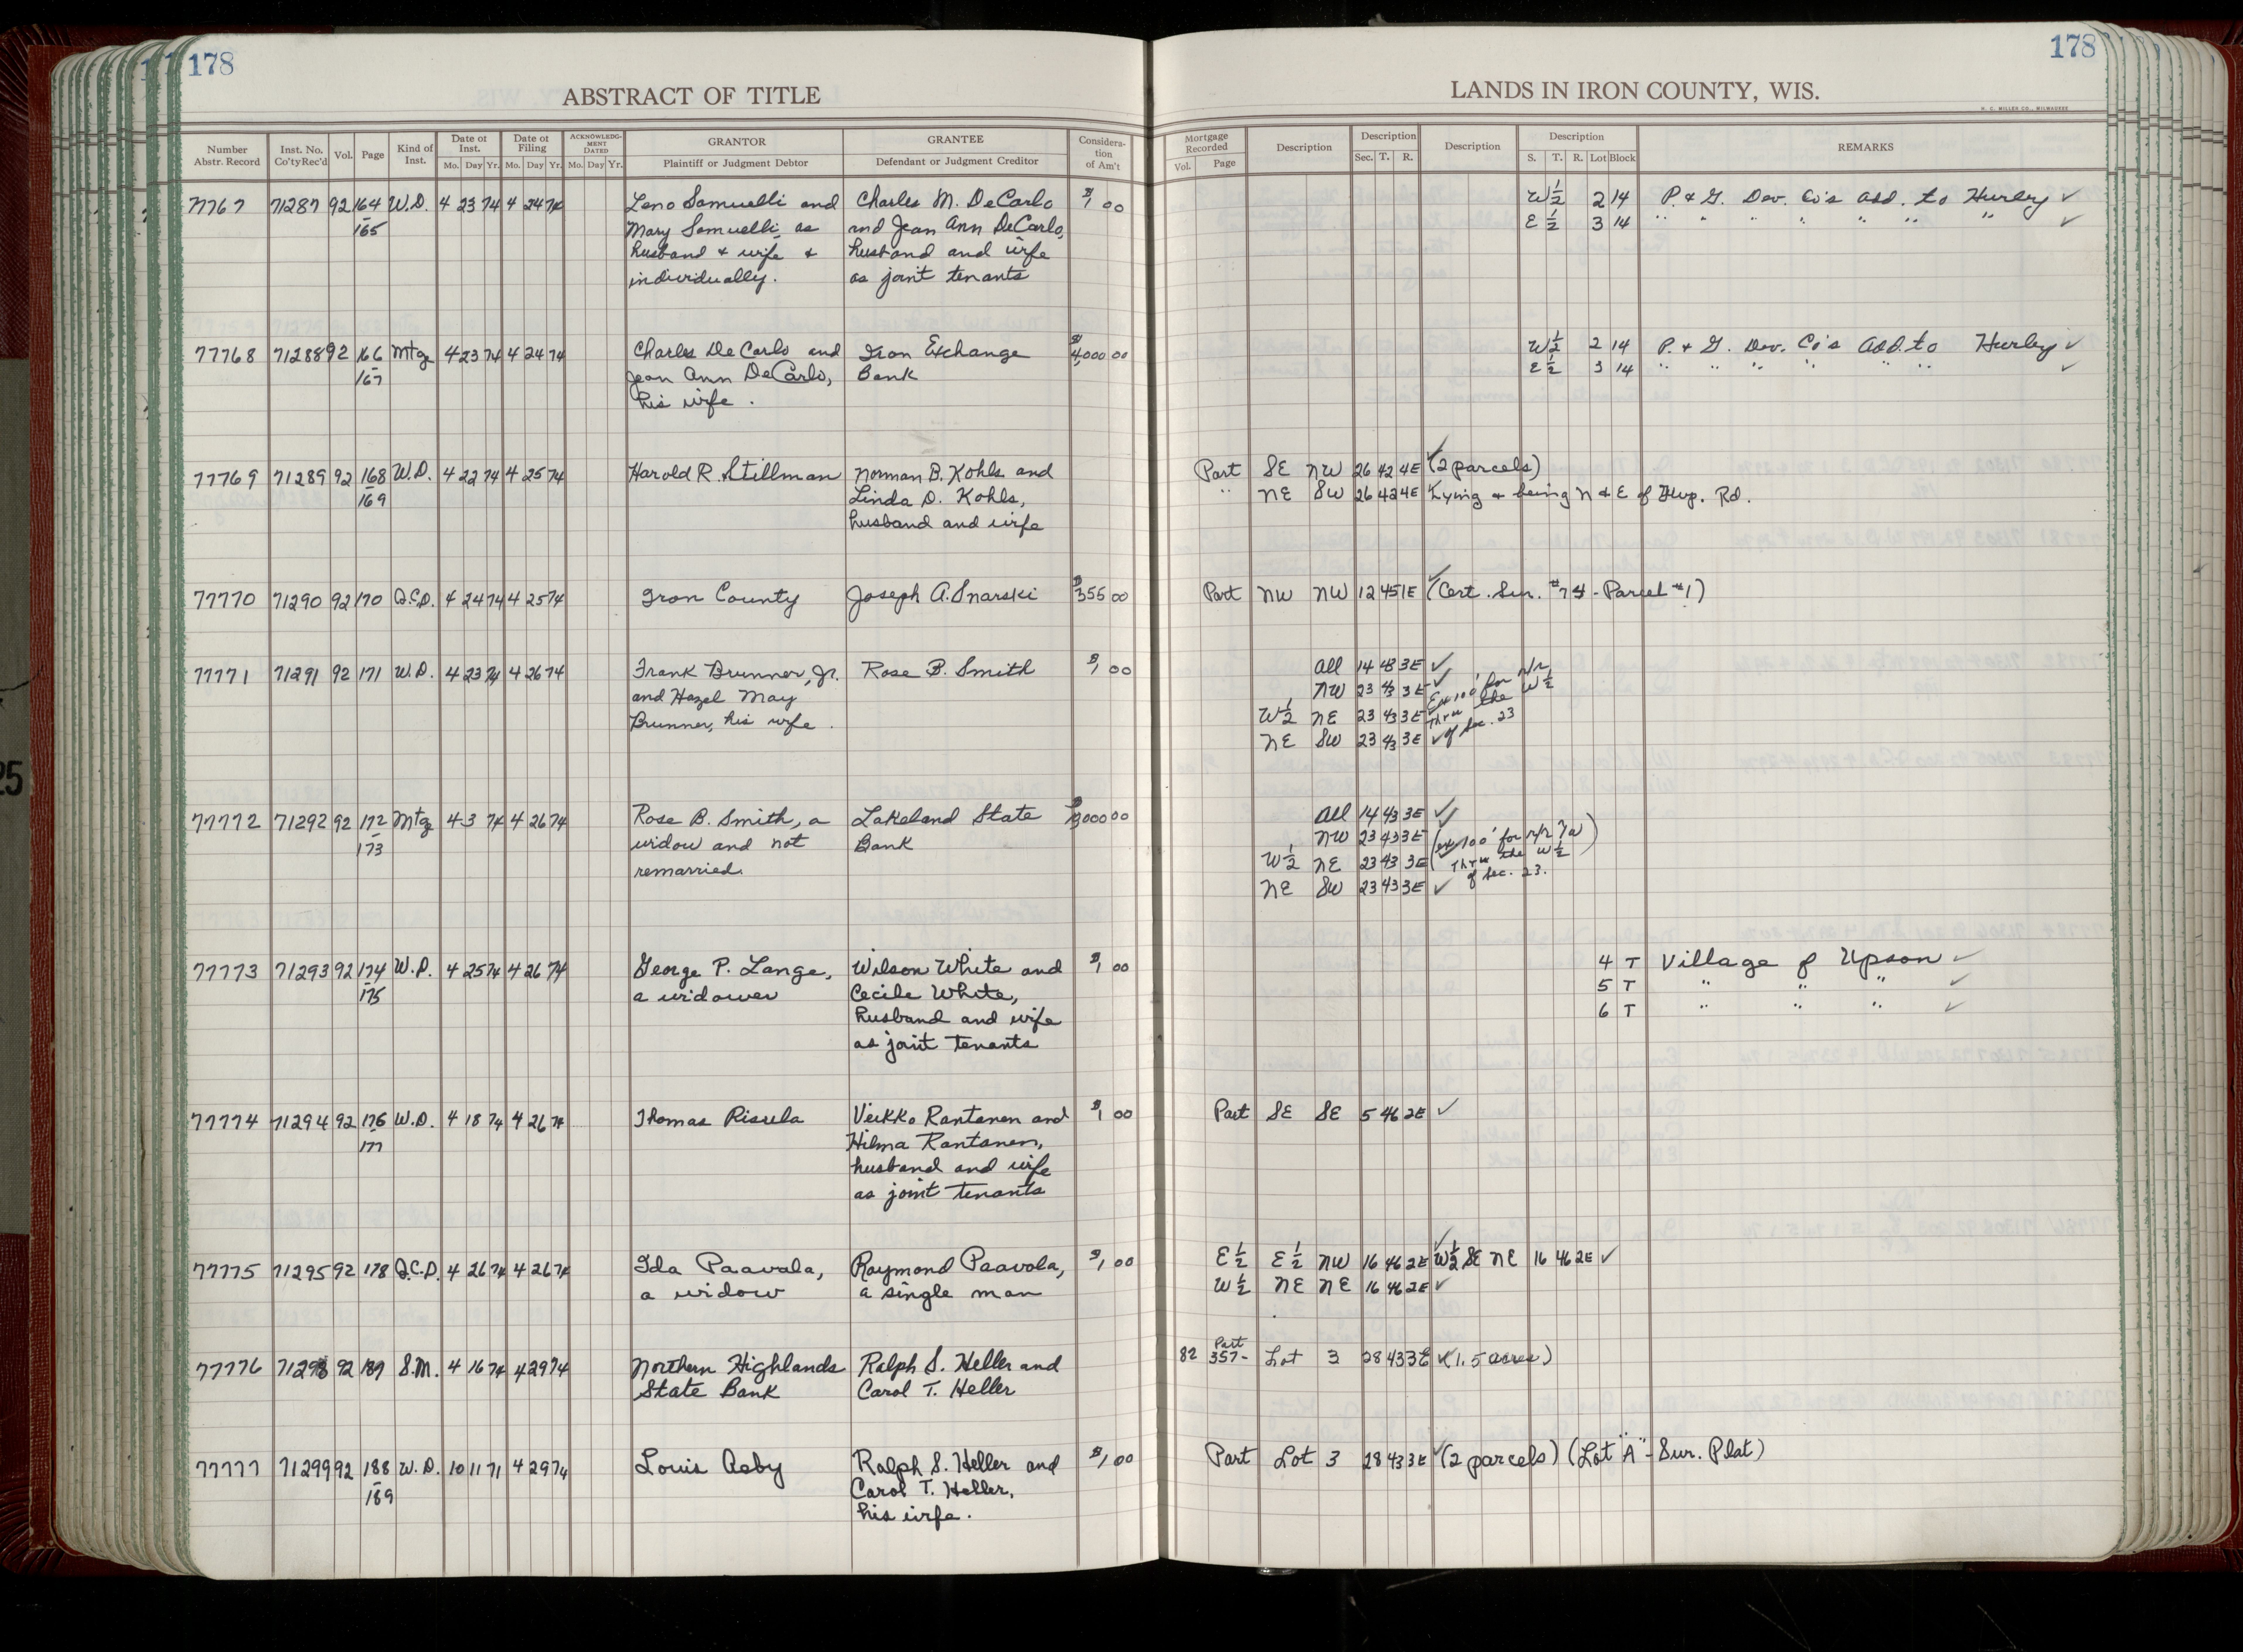 178
ABSTRACT OF TITLE
Number Abstr. Record | Inst. No. Co'ty Rec'd | Vol. | Page | Kind of Inst. | Date of Inst. Mo. Day Yr. | Date of Filing Mo. Day Yr. | ACKNOWLEDG-MENT DATED Mo. Day Yr. | GRANTOR Plaintiff or Judgment Debtor | GRANTEE Defendant or Judgment Creditor | Considera-tion of Am't
77767 71287 92 164 W.D. 4 23 74 4 24 74 Leno Samuelli and Charles M. DeCarlo $1 00
165 Mary Samuelli, as and Jean Ann DeCarlo,
husband & wife & husband and wife
individually. as joint tenants
77768 71288 92 166 Mtg 4 23 74 4 24 74 Charles DeCarlo and Iron Exchange $4,000 00
167 Jean Ann DeCarlo, Bank
his wife.
77769 71289 92 168 W.D. 4 22 74 4 25 74 Harold R. Stillman Norman B. Kohls and
169 Linda D. Kohls,
husband and wife
77770 71290 92 170 Q.C.D. 4 24 74 4 25 74 Iron County Joseph A. Snarski $355 00
77771 71291 92 171 W.D. 4 23 74 4 26 74 Frank Brunner, Jr. Rose B. Smith $1 00
and Hazel May
Brunner, his wife.
77772 71292 92 172 Mtg 4 3 74 4 26 74 Rose B. Smith, a Lakeland State 000 00
173 widow and not Bank
remarried.
77773 71293 92 174 W.D. 4 25 74 4 26 74 George P. Lange, Wilson White and $1 00
175 a widower Cecile White,
husband and wife
as joint tenants
77774 71294 92 176 W.D. 4 18 74 4 26 74 Thomas Risula Veikko Rantanen and $1 00
177 Hilma Rantanen,
husband and wife
as joint tenants
77775 71295 92 178 Q.C.D. 4 26 74 4 26 74 Ida Paavala, Raymond Paavola, $1 00
a widow a single man
77776 71298 92 187 S.M. 4 16 74 4 29 74 Northern Highlands Ralph S. Heller and
State Bank Carol T. Heller
77777 71299 92 188 W.D. 10 11 71 4 29 74 Louis Aaby Ralph S. Heller and $1 00
189 Carol T. Heller,
his wife.
178
LANDS IN IRON COUNTY, WIS.
H. C. MILLER CO., MILWAUKEE
Mortgage Recorded Vol. Page | Description | Description Sec. T. R. | Description | Description S. T. R. Lot Block | REMARKS
W½ 2 14 P. & G. Dev. Co's Add. to Hurley ✓
E½ 3 14 " " " " " " " ✓
W½ 2 14 P. & G. Dev. Co's Add. to Hurley ✓
E½ 3 14 " " " " " " ✓
Part SE NW 26 42 4E ✓ (2 parcels)
" NE SW 26 42 4E Lying & being N & E of Hwy. Rd.
Part NW NW 12 45 1E ✓ (Cert. Sur. #74 - Parcel #1)
All 14 43 3E ✓
NW 23 43 3E ✓ Ex 100' for r/r
W½ NE 23 43 3E Thru the W½
NE SW 23 43 3E ✓ of Sec. 23
All 14 43 3E ✓
NW 23 43 3E (ex 100' for r/r
W½ NE 23 43 3E Thru the W½
NE SW 23 43 3E ✓ of Sec. 23.
4 T Village of Upson ✓
5 T " " " ✓
6 T " " " ✓
Part SE SE 5 46 2E ✓
E½ E½ NW 16 46 2E ✓ W½ SE NE 16 46 2E ✓
W½ NE NE 16 46 2E ✓
Part
82 357- Lot 3 28 43 3E ✓ (1.5 acres)
Part Lot 3 28 43 3E ✓ (2 parcels) (Lot "A" - Sur. Plat)
25